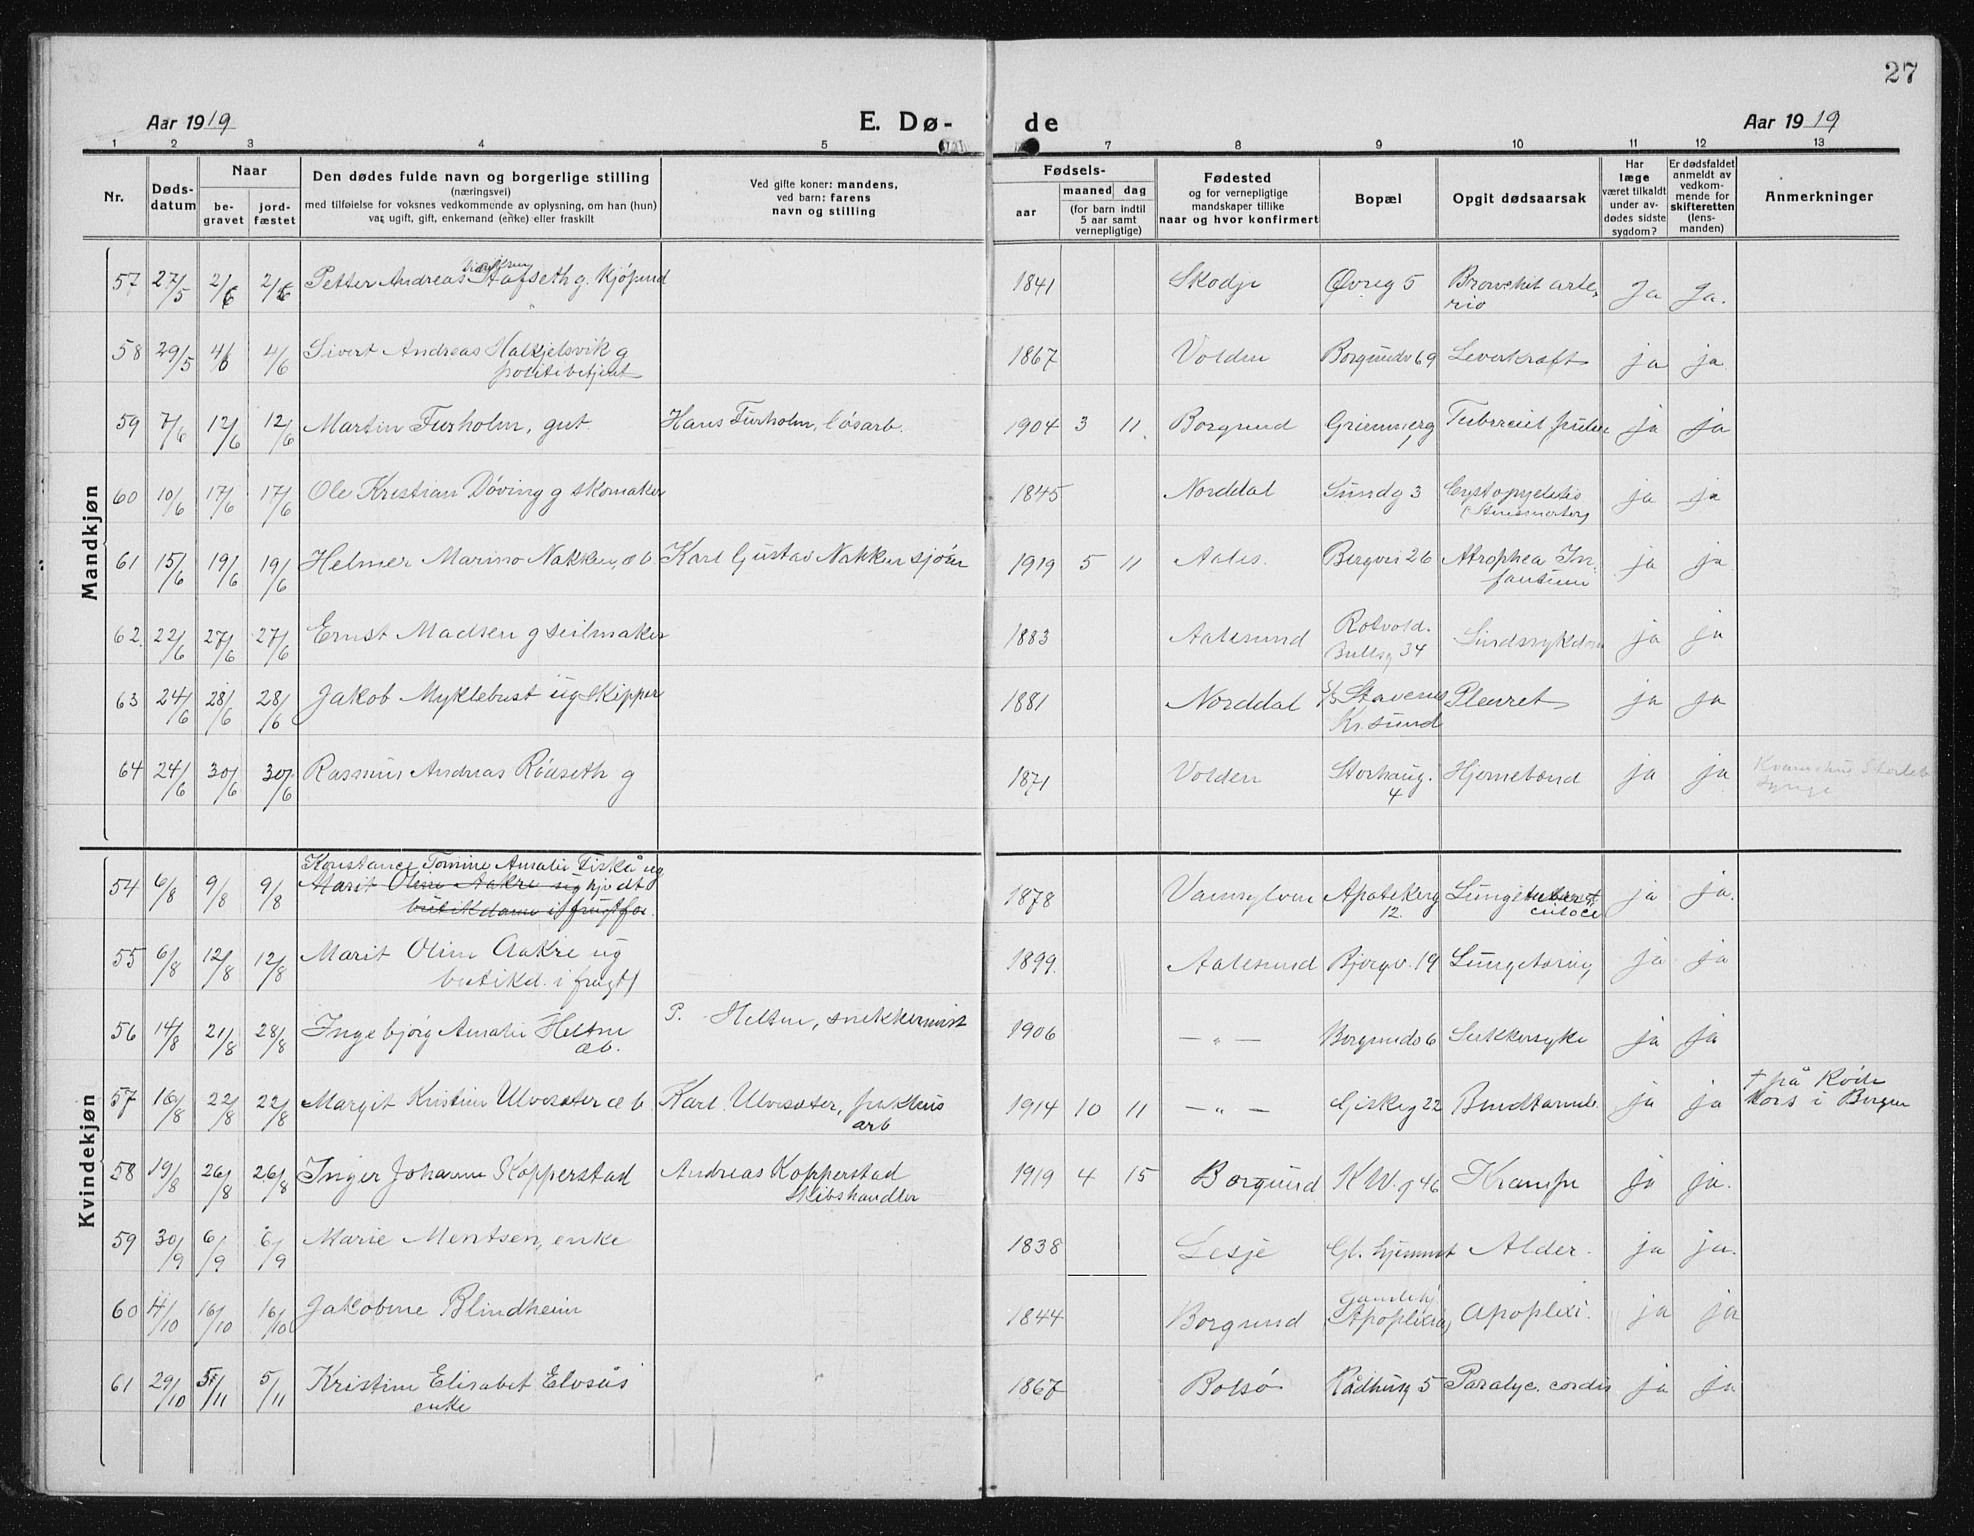 27
Aar 1919
E. Dø-
de
Aar 1919
1 2 3 4 5 7 8 9 10 11 12 13
Nr.
Døds-
datum
Naar
be-
gravet
jord-
fæstet
Den dødes fulde navn og borgerlige stilling
(næringsvei)
med tilføielse for voksnes vedkommende av oplysning, om han (hun)
var ugift, gift, enkemand (enke) eller fraskilt
Ved gifte koner: mandens,
ved barn: farens
navn og stilling
Fødsels-
aar
maaned
dag
(for barn indtil
5 aar samt
vernepligtige)
Fødested
og for vernepligtige
mandskaper tillike
naar og hvor konfirmert
Bopæl
Opgit dødsaarsak
Har
læge
været tilkaldt
under av-
dødes sidste
sygdom?
Er dødsfaldet
anmeldt av
vedkom-
mende for
skifteretten
(lens-
manden)
Anmerkninger
Mandkjøn
57 27/5 2/6 2/6 Petter Andreas Hafseth g. Kjøpmd 1841 Skodje Øvreg 5 Ja Ja.
58 29/5 4/6 4/6 Sivert Andreas Halkjelsvik g
politibetjent
1867 Volden Borgundv 69 Leverkræft ja ja
59 7/6 12/6 12/6 Martin Furholm, gut. Hans Furholm, løsarb. 1904 3 11 Borgund ja ja
60 10/6 17/6 17/6 Ole Kristian Døving g skomaker 1845 Norddal Sundg 3 Cystopyelitis ja ja
61 15/6 19/6 19/6 Helmer Marino Nakken, æb. Karl Gustav Nakken sjöm 1919 5 11 Aales. Bergvei 26 Atrophea In-
fantum
ja ja
62 22/6 27/6 27/6 Ernst Madsen g seilmaker 1883 Aalesund Rotvold.
Bullsg 34
Sindssykdom ja ja
63 24/6 28/6 28/6 Jakob Myklebust ug skipper 1881 Norddal S/S Stavenes
Kr.sund
Pleuret ja ja
64 24/6 30/6 30/6 Rasmus Andreas Rødseth g 1871 Volden Storhaug.
4
ja ja
Kvindekjøn
54 6/8 9/8 9/8 Konstance Tomine Amalie Fiskå ug
Marit Oline Aakre ug hjv dt
butikdame i frugtfor.
1878 Vannylven Apotekerg
12.
ja ja.
55 6/8 12/8 12/8 Marit Oline Aakre ug
butikd. i frugtf
1899. Aalesund Bjørgv. 19 Lungetæring ja ja
56 14/8 21/8 28/8 Ingebjörg Amalie Heltne
æb.
P. Heltne, snekkermst 1906 — „ — Borgundv 6 Sukkersyke ja ja
57 16/8 22/8 22/8 Margit Kristine Ulvesæter æb Karl Ulvesæter, pakhus
arb
1914 10 11 — „ — Giskeg 22 ja ja † på Røde
Kors i Bergen
58 19/8 26/8 26/8 Inger Johanne Kopperstad Andreas Kopperstad
Skibshandler
1919 4 15 Borgund K.W.g 46 Krampe ja ja.
59 30/9 6/9 6/9 Marie Mentsen, enke 1838 Lesje Gl. hjemmet Alder. ja ja.
60 11/10 16/10 16/10 Jakobine Blindheim 1844 Borgund Apoplexi. ja ja
61 29/10 5/11 5/11 Kristine Elisabet Elvsås
enke
1867 Bolsø Rådhusg 5 Paralyc. cordis ja ja